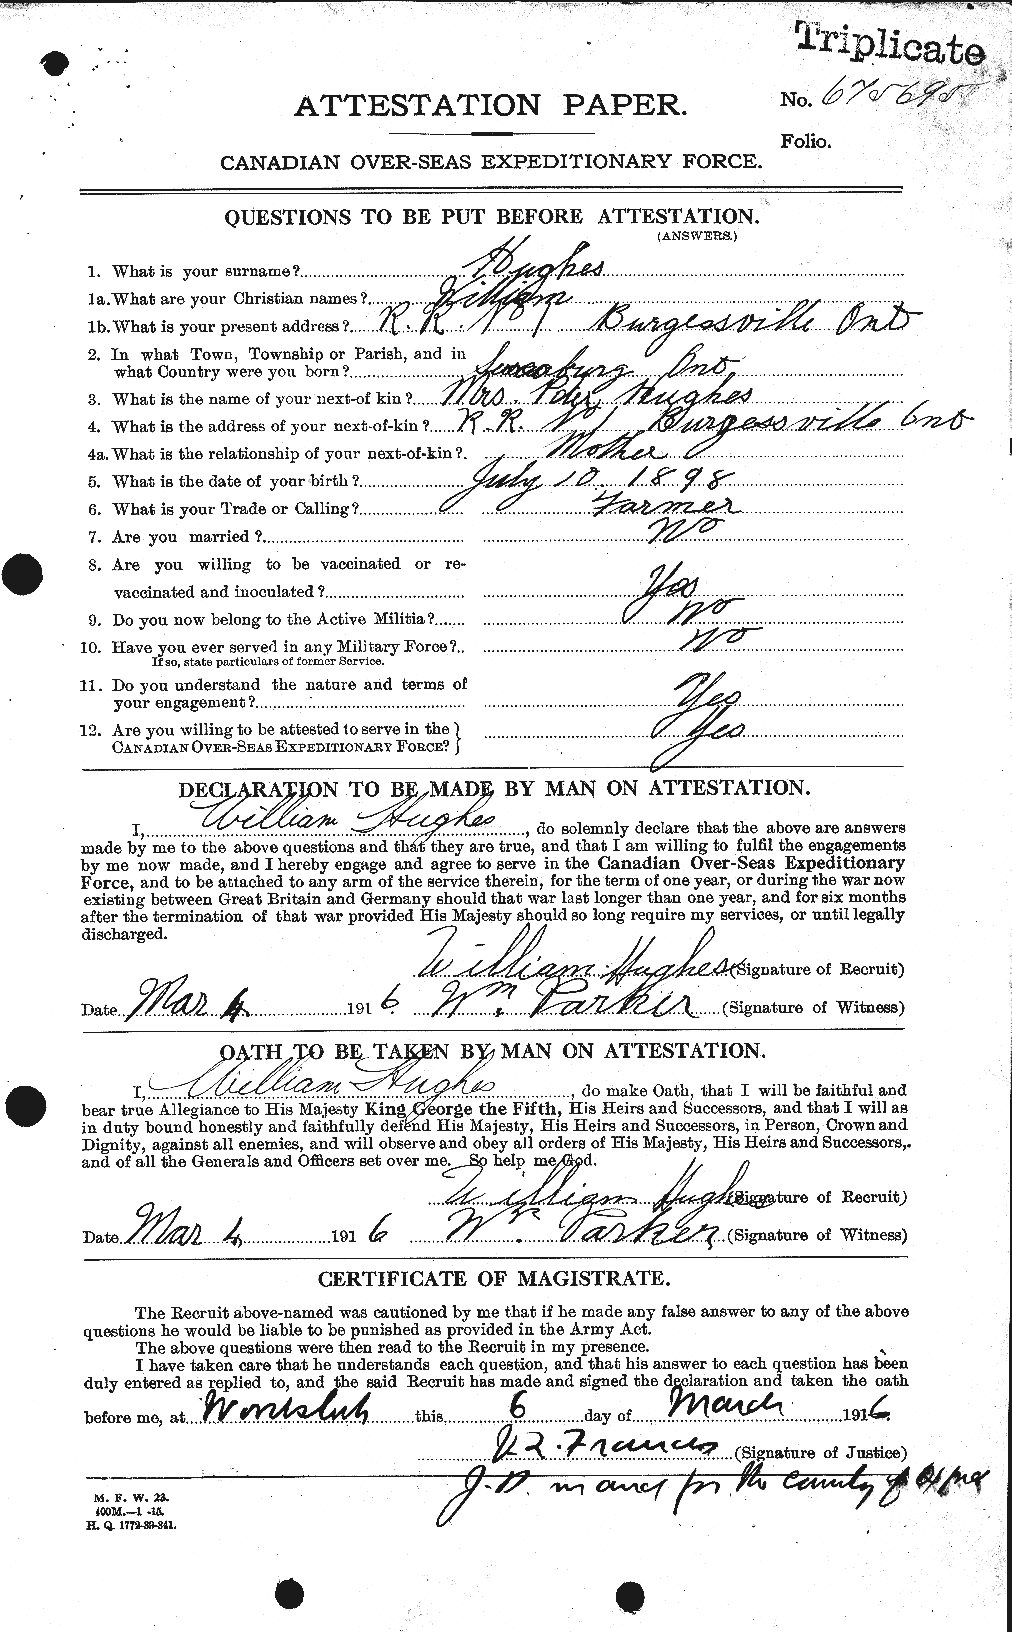 Triplicate
No. 675695
ATTESTATION PAPER.
Folio.
CANADIAN OVER-SEAS EXPEDITIONARY FORCE.
QUESTIONS TO BE PUT BEFORE ATTESTATION.
(ANSWERS.)
1. What is your surname? Hughes
1a. What are your Christian names? William
1b. What is your present address? R. R. No 1 Burgessville Ont
2. In what Town, Township or Parish, and in
what Country were you born? Ont
3. What is the name of your next-of kin? Mrs. Peter Hughes
4. What is the address of your next-of-kin? R. R. No 1 Burgessville Ont
4a. What is the relationship of your next-of-kin? Mother
5. What is the date of your birth? July 10. 1898
6. What is your Trade or Calling? Farmer
7. Are you married? No
8. Are you willing to be vaccinated or re-
vaccinated and inoculated? Yes
9. Do you now belong to the Active Militia? No
10. Have you ever served in any Military Force? No
If so, state particulars of former Service.
11. Do you understand the nature and terms of
your engagement? Yes
12. Are you willing to be attested to serve in the
CANADIAN OVER-SEAS EXPEDITIONARY FORCE? Yes
DECLARATION TO BE MADE BY MAN ON ATTESTATION.
I, William Hughes, do solemnly declare that the above are answers
made by me to the above questions and that they are true, and that I am willing to fulfil the engagements
by me now made, and I hereby engage and agree to serve in the Canadian Over-Seas Expeditionary
Force, and to be attached to any arm of the service therein, for the term of one year, or during the war now
existing between Great Britain and Germany should that war last longer than one year, and for six months
after the termination of that war provided His Majesty should so long require my services, or until legally
discharged.
William Hughes (Signature of Recruit)
Date Mar 4 1916 Wm. Parker (Signature of Witness)
OATH TO BE TAKEN BY MAN ON ATTESTATION.
I, William Hughes, do make Oath, that I will be faithful and
bear true Allegiance to His Majesty King George the Fifth, His Heirs and Successors, and that I will as
in duty bound honestly and faithfully defend His Majesty, His Heirs and Successors, in Person, Crown and
Dignity, against all enemies, and will observe and obey all orders of His Majesty, His Heirs and Successors,
and of all the Generals and Officers set over me. So help me God.
William Hughes (Signature of Recruit)
Date Mar 4 1916 Wm. Parker (Signature of Witness)
CERTIFICATE OF MAGISTRATE.
The Recruit above-named was cautioned by me that if he made any false answer to any of the above
questions he would be liable to be punished as provided in the Army Act.
The above questions were then read to the Recruit in my presence.
I have taken care that he understands each question, and that his answer to each question has been
duly entered as replied to, and the said Recruit has made and signed the declaration and taken the oath
before me, at Woodstock this 6 day of March 1916
Francis (Signature of Justice)
J.P. in and for the county of Oxford
M. F. W. 23.
400M.—1-15.
H. Q. 1772-39-841.